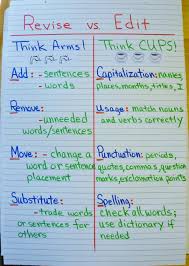 Revise vs. Edit
Think Arms!
Add: - sentences
- words
Remove:
- unneeded
words/sentences
Move: - change a
word or sentence
placement
Substitute:
- trade words
or sentences for
others
Think CUPS!
Capitalization: names,
places, months, titles, I
Usage: match nouns
and verbs correctly
Punctuation: periods,
quotes, commas, question
marks, exclamation points
Spelling:
check all words;
use dictionary if
needed